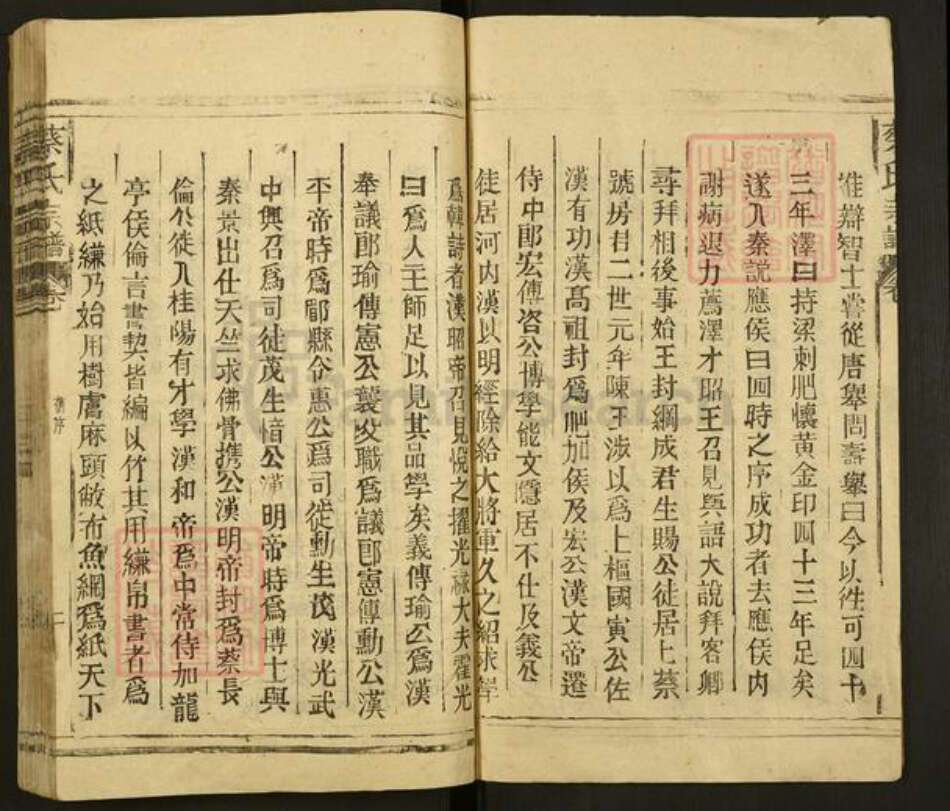 雄辯智士嘗從唐舉問壽舉曰今以徃可四十
三年澤曰持梁刺肥懷黃金印四十三年足矣
遂入秦說應侯曰四時之序成功者去應侯内
謝病退力薦澤才昭王召見與語大說拜客卿
尋拜相後事始王封綱成君生賜公徒居上蔡
號房君二世元年陳王涉以爲上樞國寅公佐
漢有功漢髙祖封爲肥加侯及宏公漢文帝遷
侍中郎宏傳咨公博學能文隱居不仕及義公
徒居河内漢以明經除給大將軍久之紹求
爲韓詩者漢昭帝召見悅之擢光祿大夫霍光
曰爲人主師足以見其品學矣義傳瑜公爲漢
奉議郎瑜傳憲公襲父職爲議郎憲傳勳公漢
平帝時爲郿縣令惠公爲司徒勳生茂漢光武
中興召爲司徒茂生愔公漢明帝時爲博士與
秦景出仕天竺求佛骨携公漢明帝封爲蔡長
倫公徒入桂陽有才學漢和帝爲中常侍加龍
亭侯倫言書契皆編以竹其用縑帛書者爲
之紙縑乃始用樹膚麻頭敝布魚網爲紙天下
蔡氏宗譜 卷
舊序
二
蔡氏宗譜 卷